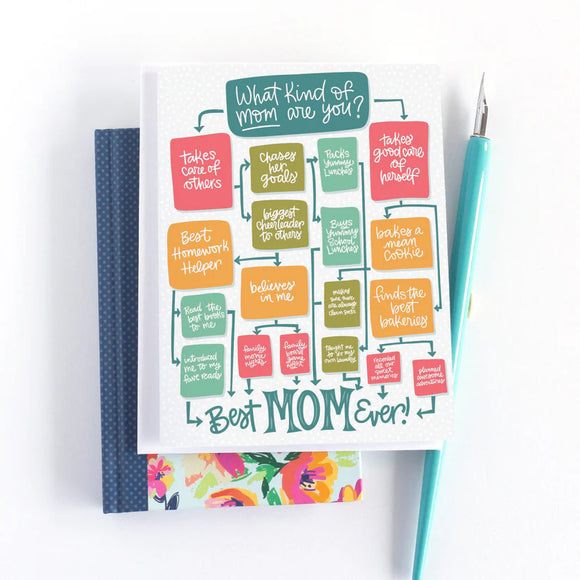 What Kind of
Mom are you?
takes
care of
others
Chases
her
goals
Packs
Yummy
Lunches
takes
good care
of
herself
biggest
cheerleader
to others
Buys
Yummy
School
Lunches
bakes a
mean
Cookie
Best
Homework
Helper
believes
in me
making
sure there
are always
clean socks
finds the
best
bakeries
Read the
best books
to me
family
movie
nights
family
board
game
night
taught me
to do my
own laundry
introduced
me to my
fave reads
recorded
all our
sweet
memories
planned
awesome
adventures
Best MOM Ever!